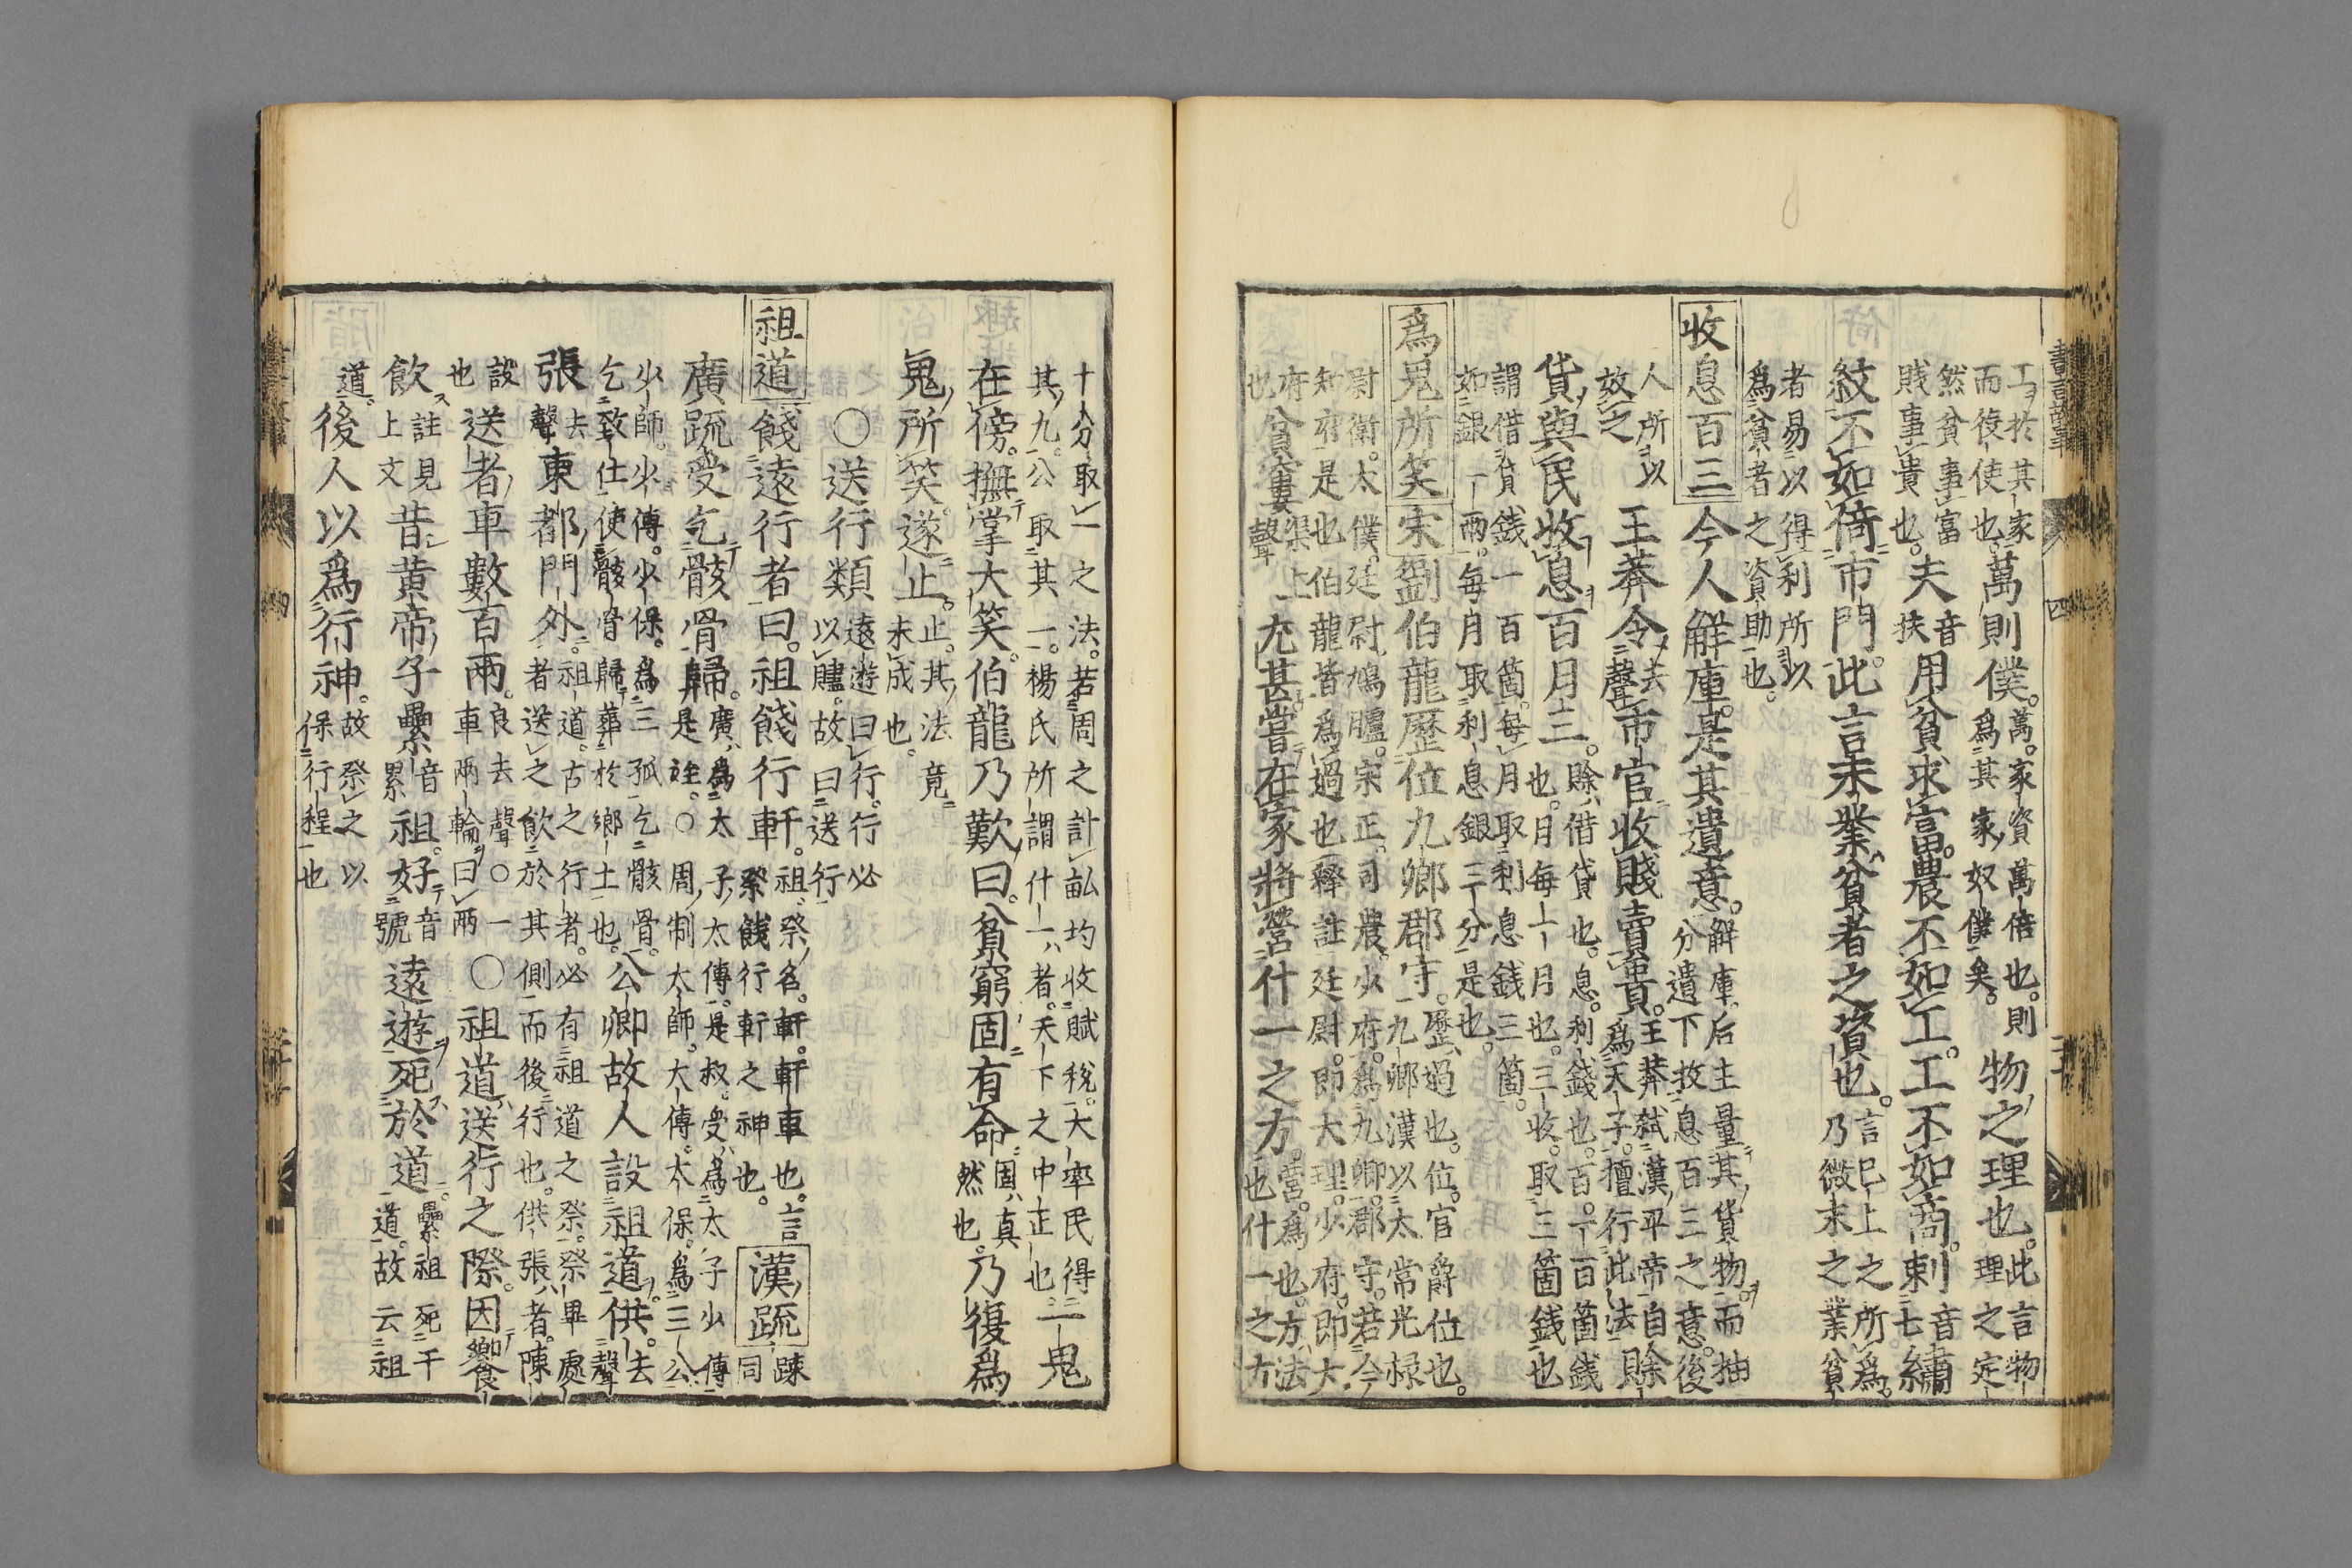 工於其家而役使也。萬則僕。萬。家資萬倍也。則為其家奴僕矣。物之理也。此言物理之定
然貧事富賤事貴也。夫音扶用貧求富。農不如工。工不如商。刺音七繡
紋不如倚市門。此言末業貧者之資也。言已上之所為。乃微末之業貧
者易以得利所以為貧者之資助也。
收息百三 今人解庫。是其遺意。解庫后主量其貨物而抽分遺下放息百三之意。後
人所以效之王莽令去聲市官收賤賣貴。王莽弒漢平帝自為天子。擅行此法賒
貸與民收息百月三。賒借貸也。息。利錢也。百。一百箇錢也。月每一月也。三收。取三箇錢也
謂借貸錢一百箇。每月取利息錢三箇。如銀一兩。每月取利息銀三分是也。
為鬼所笑 宋 劉伯龍歷位九鄉郡守。歷過也。位。官爵位也。九鄉漢以太常光祿
尉衛。太僕。廷尉。鴻臚。宗正。司農。少府。為九卿。郡守。若今知府是也伯龍皆為過也釋註廷尉。即大理。少府。即大
府也貧窶渠上聲尤甚嘗在家將營什一之方。營。為也。方。法也什一之方
十分取一之法。若周之計畝均收賦稅。大率民得其九。公取其一。楊氏所謂什一者。天下之中正也。一鬼
在傍。撫掌大笑。伯龍乃歎曰。貧窮固有命固真然也。乃復為
鬼所笑。遂止。止。其法竟未成也。
○送行類 遠遊曰行。行必以贐。故曰送行
祖道 餞遠行者曰。祖餞行軒。祖祭名。軒。軒車也。言祭餞行軒之神也。漢疏踈同
廣疏受乞骸骨歸。廣為太子太傅。是叔。受為太子少傅是姪。○周制太師。太傅。太保。為三公
少師。少傅。少保。為三孤乞骸骨。乞致仕使骸骨歸葬於鄉土也。公卿故人設祖道。供去聲
張去聲東都門外。祖道。古之行者。必有祖道之祭。祭畢處者送之飲於其側而後行也。供張者。陳
設也送者車數百兩。良去聲○一車兩輪曰兩○祖道送行之際。因饗
飲註見上文昔黃帝子纍音累祖。好音號遠遊死於道。纍祖死于道。故云祖
道。後人以為行神。故祭之以保行程也
書言故事
四